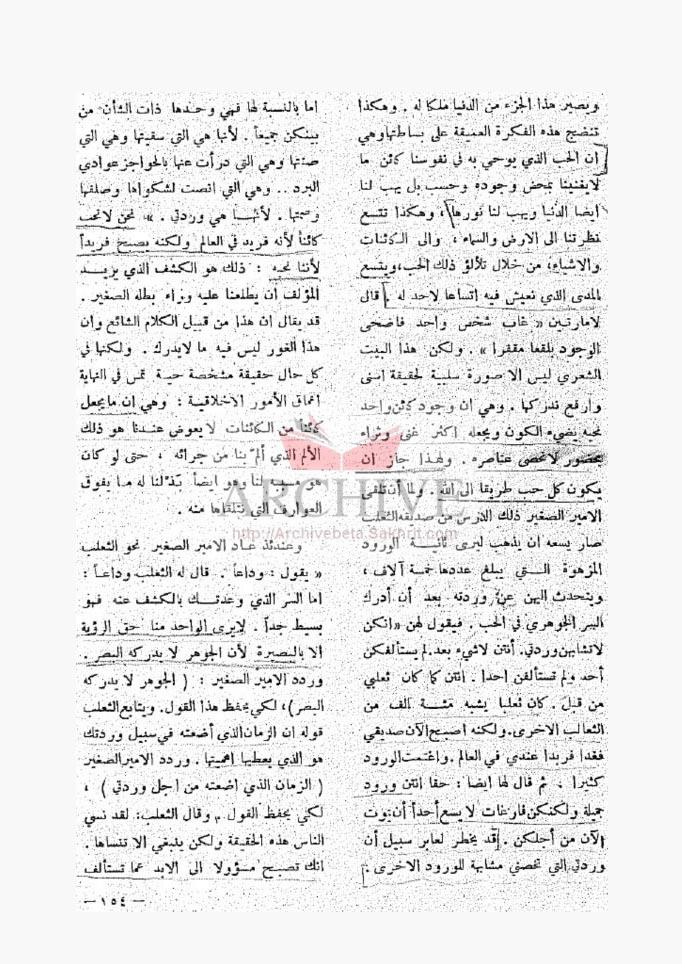 ويصير هذا الجزء من الدنيا ملكا له . وهكذا
تنضج هذه الفكرة العميقة على بساطتها وهي
ان الحب الذي يوحي به في نفوسنا كائن ما
لا يغنينا بمحض وجوده وحسب بل يهب لنا
ايضا الدنيا ويهب لنا نورها ، وهكذا تتسع
نظرتنا الى الارض والسماء ، والى الكائنات
والاشياء، من خلال تلألؤ ذلك الحب، ويتسع
المدى الذي نعيش فيه اتساعا لاحد له . قال
لامارتين « غاب شخص واحد فاضحى
الوجود بلقعا مقفرا » . ولكن هذا البيت
الشعري ليس الا صورة سلبية لحقيقة اسنى
وارفع ندركها . وهي ان وجود كائن واحد
نحبه يضيء الكون ويجعله اكثر غنى وثراء
بحضور لا تحصى عناصره . ولهذا جاز ان
يكون كل حب طريقا الى الله . ولما ان تلقى
الامير الصغير ذلك الدرس من صديقه الثعلب
صار يسعه ان يذهب ليرى ثانيـة الورود
المزهوة التـي يبلغ عددها خمسة آلاف ،
ويتحدث اليهن عن وردته بعد أن أدرك
السر الجوهري في الحب . فيقول لهن «انكن
لا تشابهن وردتي. أنتن لاشيء بعد. لم يستألفكن
أحد ولم تستألفن احدا . انتن كما كان ثعلبي
من قبل . كان ثعلبا يشبه مئـة الف من
الثعالب الاخرى. ولكنه اصبح الآن صديقي
فغدا فريدا عندي في العالم . واغتمت الورود
كثيرا . ثم قال لها ايضا : حقا انتن ورود
جميلة ولكنكن فارغات لا يسع أحداً أن يموت
الآن من أجلكن . قد يخطر لعابر سبيل أن
وردتي التي تخصني مشابهة للورود الاخرى .
اما بالنسبة لها فهي وحـدها ذات الشأن من
بينكن جميعاً . لأنها هي التي سقيتها وهي التي
صنتها وهي التي درأت عنها بالحواجز عوادي
البرد .. وهي التي انصت لشكواها وصلفها
وصمتها . لأنـها هي وردتي . » نحن لا نحب
كائناً لأنه فريد في العالم ولكنه يصبح فريداً
لأننا نحبه : ذلك هو الكشف الذي يريـد
المؤلف أن يطلعنا عليه وراء بطله الصغير .
قد يقال ان هذا من قبيل الكلام الشائع وان
هذا الغور ليس فيه ما لايدرك . ولكنها في
كل حال حقيقة مشخصة حية تمس في النهاية
اعماق الأمور الاخلاقيـة : وهي ان ما يجعل
كائنا من الكائنات لا يعوض عندنا هو ذلك
الألم الذي ألم بنا من جرائه ، حتى لو كان
هو مسببه لنا وهو ايضاً بذلنا له ما يفوق
العوارف التي نتلقاها منه .
وعندئذ عـاد الامير الصغير نحو الثعلب
« يقول : وداعاً . قال له الثعلب وداعـاً :
اما السر الذي وعدتـك بالكشف عنه فهو
بسيط جداً . لايرى الواحد منا حق الرؤية
الا بالبصيرة لأن الجوهر لا يدركه البصر .
وردد الامير الصغير : ( الجوهر لا يدركه
البصر )، لكي يحفظ هذا القول. ويتابع الثعلب
قوله ان الزمان الذي أضعته في سبيل وردتك
هو الذي يعطيها اهميتها . وردد الامير الصغير
( الزمان الذي اضعته من اجل وردتي ) ،
لكي يحفظ القول . وقال الثعلب: لقد نسي
الناس هذه الحقيقة ولكن ينبغي الا تنساها .
انك تصبح مسؤولا الى الابد عما تستألف
— ١٥٤ —
ARCHIVE
http://Archivebeta.Sakhrit.com